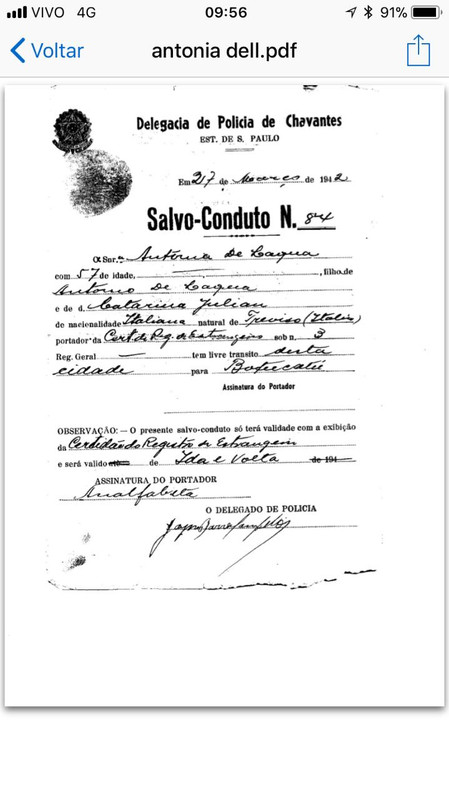 VIVO 4G 09:56 91%
Voltar antonia dell.pdf
Delegacia de Policia de Chavantes
EST. DE S. PAULO
Em 27 de Março de 1942
Salvo-Conduto N. 84
O Snr. Antonia De Laqua
com 57 de idade, , filho de
Antonio De Laqua
e de d. Catarina Julian
de nacionalidade Italiana natural de Treviso (Italia)
portador da Cert. de Reg. de Estrangeiro sob n. 3
Reg. Geral — tem livre transito desta
cidade para Botucatú
Assinatura do Portador
OBSERVAÇÃO: — O presente salvo-conduto só terá validade com a exibição
da Certidão do Registro de Estrangeiro
e será valido de Ida e Volta de 194
ASSINATURA DO PORTADOR
Analfabeta
O DELEGADO DE POLICIA